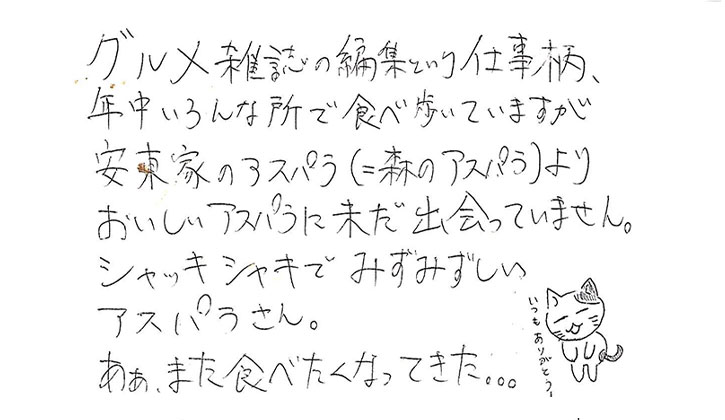 グルメ雑誌の編集という仕事柄、
年中いろんな所で食べ歩いていますが
安東家のアスパラ(=森のアスパラ)より
おいしいアスパラに未だ出会っていません。
シャッキシャキでみずみずしい
アスパラさん。
あぁ、また食べたくなってきた...
いつもありがとう!